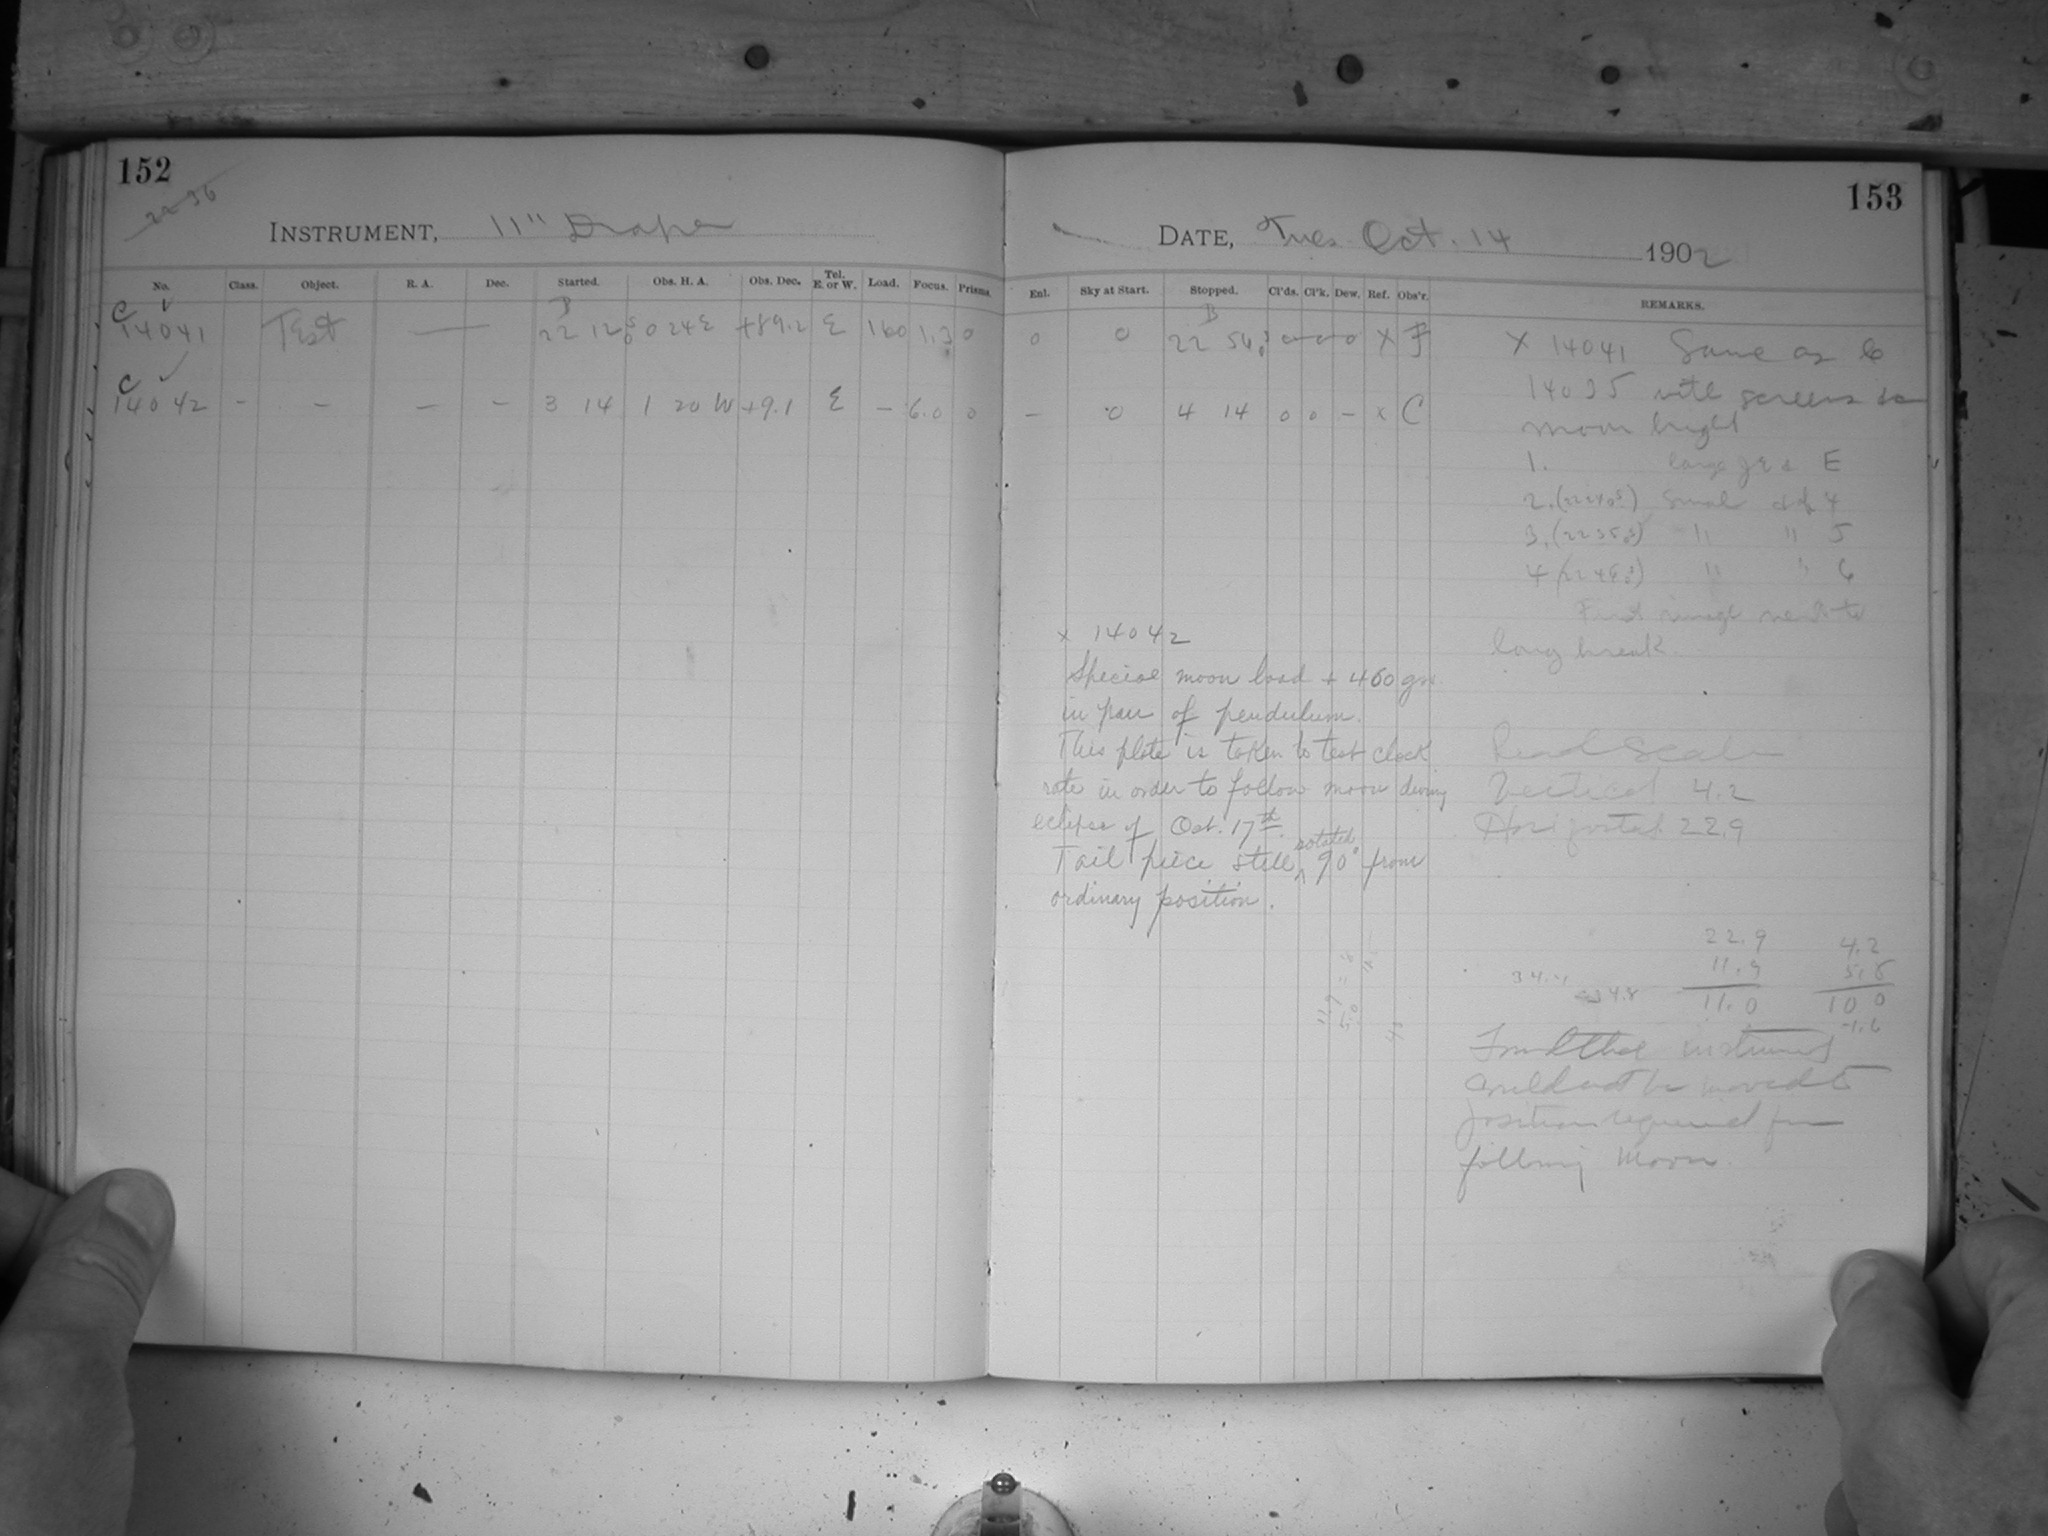 152
22 36
INSTRUMENT, 11" Draper
No. Class. Object. R. A. Dec. Started. Obs. H. A. Obs. Dec. Tel. E. or W. Load. Focus. Prisms.
C 14041 Test — 22 12 0 24 E +89.2 E 160 1.3 0
C 14042 - - - - 3 14 1 20 W +9.1 E - 6.0 0
153
DATE, Tues Oct. 14 1902
Enl. Sky at Start. Stopped. Cl'ds. Cl'k. Dew. Ref. Obs'r. REMARKS.
0 0 22 54 0 - 0 X
- 0 4 14 0 0 - x C
X 14041 Same as C
14035 with screens
moon bright
1. large E
2. small 4
3. " " 5
4 " " 6
long break.
x 14042
Special moon load + 460 gr.
in pan of pendulum.
This plate is taken to test clock
rate in order to follow moon during
eclipse of Oct. 17th.
Tail piece still rotated 90° from
ordinary position.
Read Scale
Vertical 4.2
Horizontal 22.9
22.9 4.2
11.9 5.8
34.8
11.0 10 0
-1.6
Found that instrument
could not be moved to
position required for
following Moon.